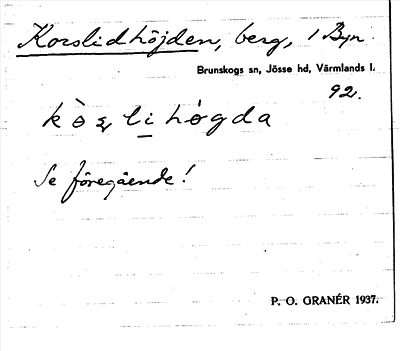 Korslidhöjden, berg, 1 Byn.
Brunskogs sn, Jösse hd, Värmlands l.
92.
Se föregående!
P. O. GRANÉR 1937.